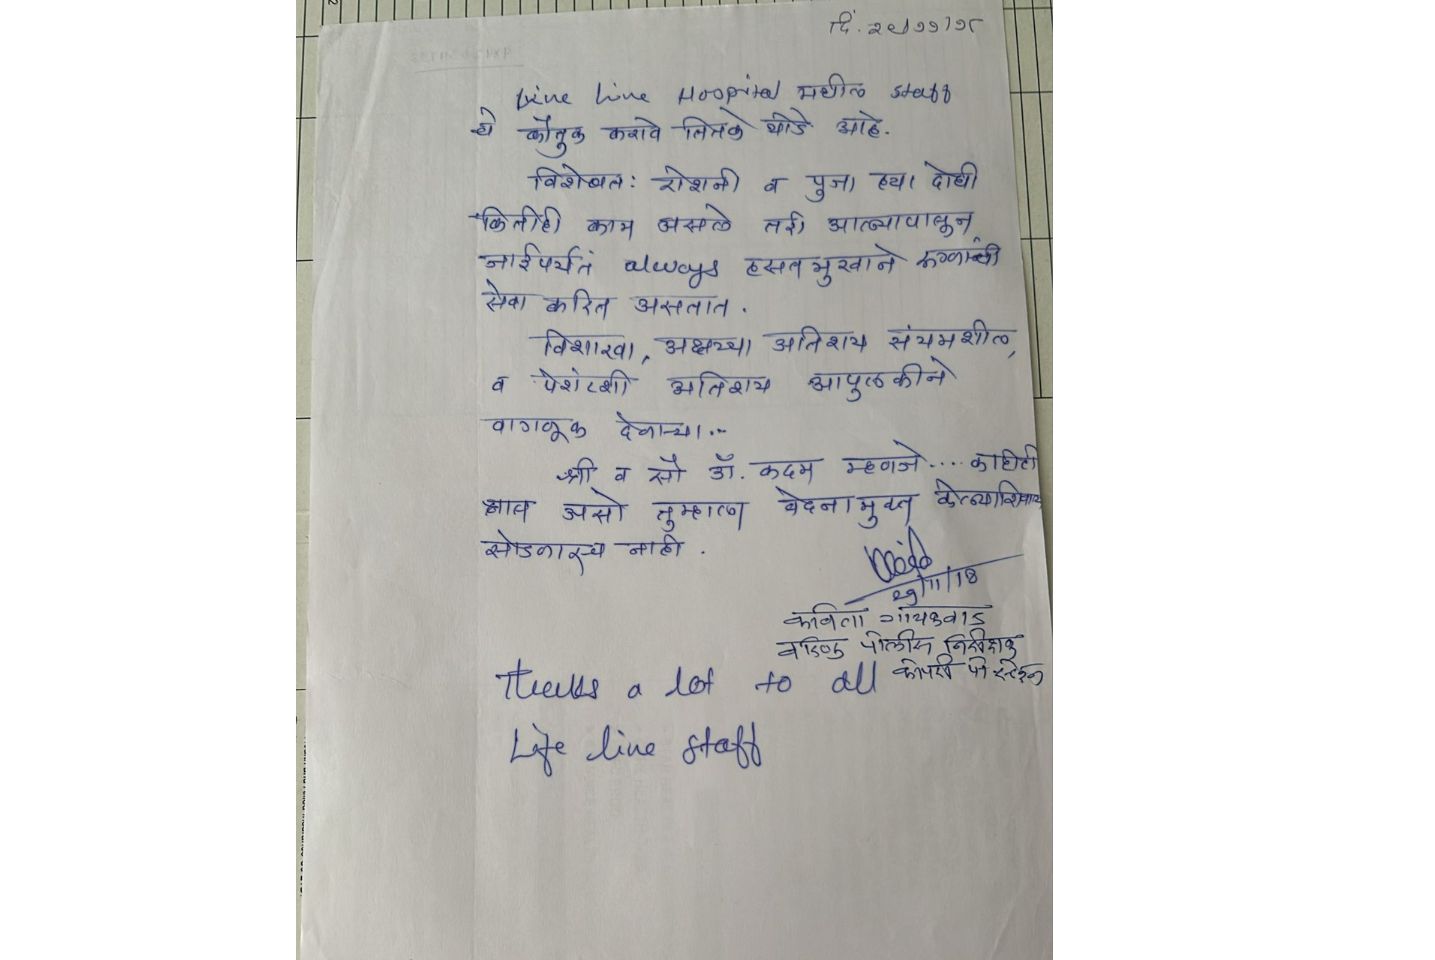 दि. २९/११/१८
Live line Hospital मधील staff
चे कौतुक करावे तितके थोडे आहे.
विशेषतः रोशनी व पुजा ह्या दोघी
कितीही काम असले तरी आल्यापासून
जाईपर्यंत always हसतमुखाने रुग्णांची
सेवा करित असतात.
विशाखा, अक्षय्या अतिशय संयमशील,
व पेशंटशी अतिशय आपुलकीने
वागणूक देणाऱ्या...
श्री व सौ डॉ. कदम म्हणजे.... काहीही
असो तुम्हाला वेदनामुक्त केल्याशिवाय
सोडणारच नाही.
29/11/18
कविता गायकवाड
वरिष्ठ पोलीस निरीक्षक
कोपरी पो स्टेशन
Thanks a lot to all
Life line staff